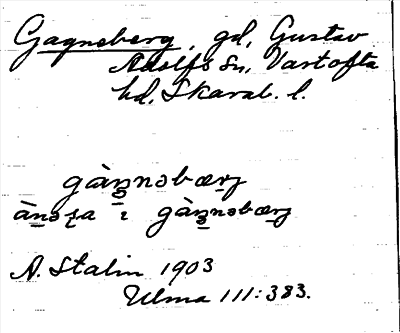 Gagnsberg, gd, Gustav
Adolfs sn, Vartofta
hd, Skarab. l.
gàŋnəbærj
àn̠əʐa ɪ gàŋnəbærj
A. Stalin 1903
Ulma 111:383.